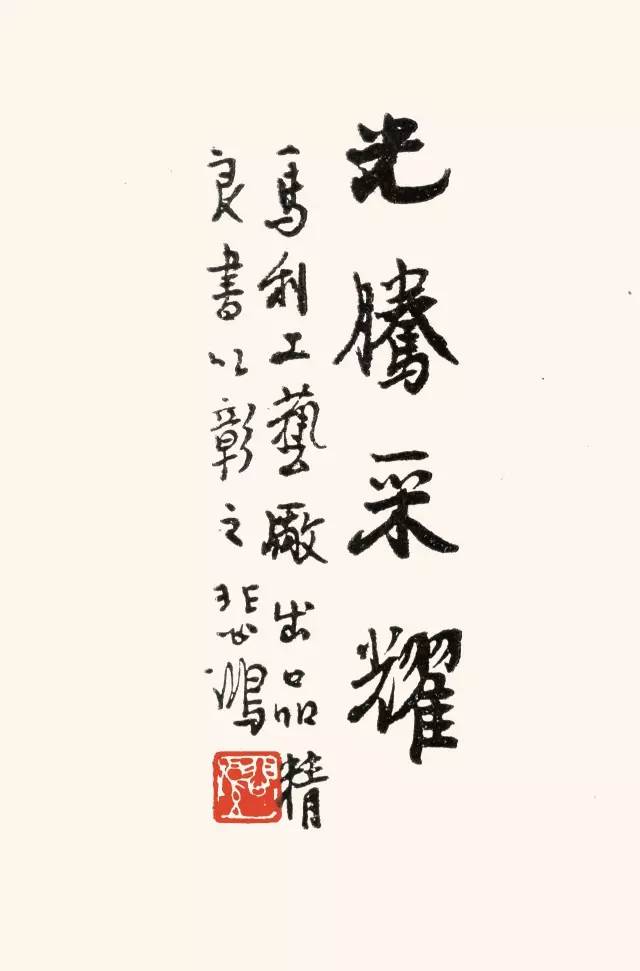 光騰采耀
馬利工藝廠出品精
良書以彰之悲鴻